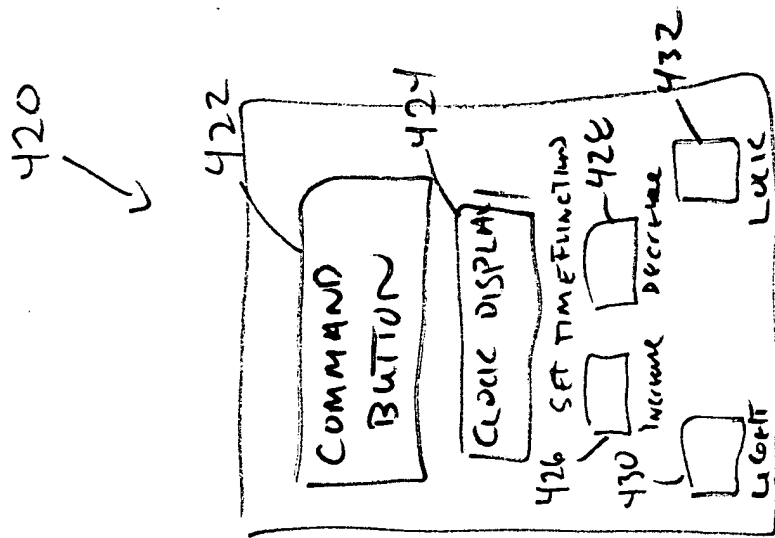 420
422
COMMAND
BUTTON
424
CLOCK DISPLAY
SET TIME FUNCTION
426
428
INCREASE
DECREASE
430
432
LIGHT
LOGIC